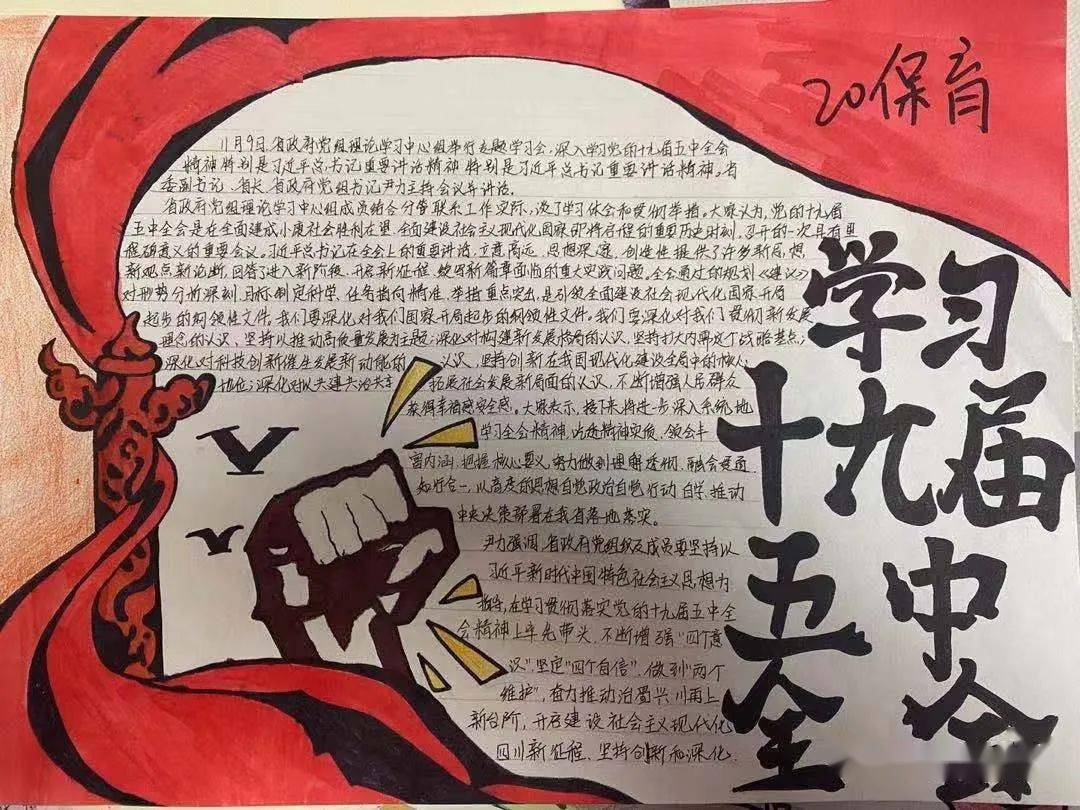 20保育
学习
十九届
五中
全会
11月9日,省政府党组理论学习中心组举行专题学习会,深入学习党的十九届五中全会
精神特别是习近平总书记重要讲话精神特别是习近平总书记重要讲话精神。省
委副书记、省长、省政府党组书记尹力主持会议并讲话。
省政府党组理论学习中心组成员结合分管联系工作实际,谈了学习体会和贯彻举措。大家认为,党的十九届
五中全会是在全面建成小康社会胜利在望、全面建设社会主义现代化国家即将启程的重要历史时刻,召开的一次具有里
程碑意义的重要会议。习近平总书记在全会上的重要讲话,立意高远、思想深邃,创造性提供了许多新思想、
新观点新论断,回答了进入新阶段、开启新征程、续写新篇章面临的重大实践问题,全会通过的规划《建议》
对形势分析深刻、目标制定科学、任务指向精准、举措重点突出,是引领全面建设社会现代化国家开局
起步的纲领性文件。我们要深化对我们国家开局起步的纲领性文件。我们要深化对我们贯彻新发展
理念的认识、坚持以推动高质量发展为主题;深化对构建新发展格局的认识,坚持扩大内需这个战略基点;
深化对科技创新催生发展新动能的 认识,坚持创新在我国现代化建设全局中的核心
地位;深化对 拓展社会发展新局面的认识,不断增强人民群众
获得幸福感安全感。大家表示,接下来将进一步深入系统地
学习全会精神,吃透精神实质,领会丰
富内涵、把握核心要义,努力做到理解透彻、融会贯通
知行合一,以高度的思想自觉政治自觉行动自觉,推动
中央决策部署在我省落地落实。
尹力强调,省政府党组织及成员要坚持以
习近平新时代中国特色社会主义思想为
指导,在学习贯彻落实党的十九届五中全
会精神上率先带头,不断增强“四个意
识”、坚定“四个自信”、做到“两个
维护”,奋力推动治蜀兴川再上
新台阶,开启建设社会主义现代化
四川新征程、坚持创新和深化